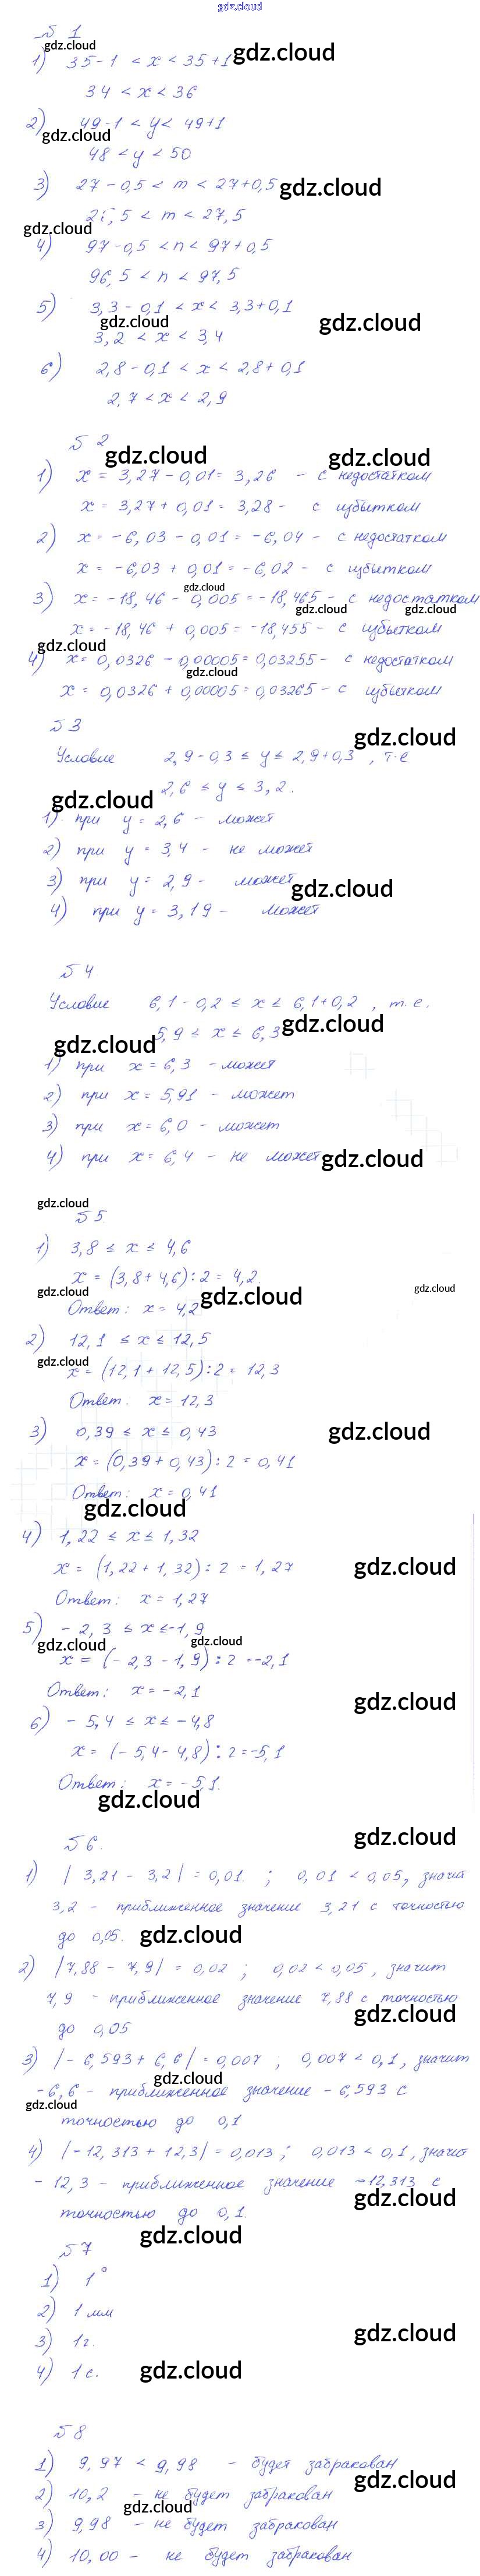 gdz.cloud
№ 1
gdz.cloud
1) 35-1 < x < 35+1 gdz.cloud
34 < x < 36
2) 49-1 < y < 49+1
gdz.cloud
48 < y < 50
3) 27-0,5 < m < 27+0,5 gdz.cloud
26,5 < m < 27,5
gdz.cloud
4) 97-0,5 < n < 97+0,5
96,5 < n < 97,5
5) 3,3-0,1 < x < 3,3+0,1
gdz.cloud gdz.cloud
3,2 < x < 3,4
6) 2,8-0,1 < x < 2,8+0,1
2,7 < x < 2,9
№ 2
gdz.cloud gdz.cloud
1) x = 3,27-0,01 = 3,26 - с недостатком
x = 3,27+0,01 = 3,28 - с избытком
2) x = -6,03-0,01 = -6,04 - с недостатком
x = -6,03+0,01 = -6,02 - с избытком
gdz.cloud
3) x = -18,46-0,005 = -18,465 - с недостатком
gdz.cloud gdz.cloud
x = -18,46+0,005 = -18,455 - с избытком
gdz.cloud
4) x = 0,0326-0,00005 = 0,03255 - с недостатком
gdz.cloud
x = 0,0326+0,00005 = 0,03265 - с избытком
№ 3
gdz.cloud
Условие 2,9-0,3 ≤ y ≤ 2,9+0,3, т.е
2,6 ≤ y ≤ 3,2.
gdz.cloud
1) при y = 2,6 - может
2) при y = 3,4 - не может
3) при y = 2,9 - может
gdz.cloud
4) при y = 3,19 - может
№ 4
Условие 6,1-0,2 ≤ x ≤ 6,1+0,2, т.е.
5,9 ≤ x ≤ 6,3 gdz.cloud
gdz.cloud
1) при x = 6,3 - может
2) при x = 5,91 - может
3) при x = 6,0 - может
4) при x = 6,4 - не может gdz.cloud
gdz.cloud
№ 5
1) 3,8 ≤ x ≤ 4,6
x = (3,8+4,6):2 = 4,2.
gdz.cloud gdz.cloud gdz.cloud
Ответ: x = 4,2
2) 12,1 ≤ x ≤ 12,5
gdz.cloud
x = (12,1+12,5):2 = 12,3
Ответ: x = 12,3
3) 0,39 ≤ x ≤ 0,43 gdz.cloud
x = (0,39+0,43):2 = 0,41
Ответ: x = 0,41
gdz.cloud
4) 1,22 ≤ x ≤ 1,32
x = (1,22+1,32):2 = 1,27 gdz.cloud
Ответ: x = 1,27
5) -2,3 ≤ x ≤ -1,9
gdz.cloud gdz.cloud
x = (-2,3-1,9):2 = -2,1
Ответ: x = -2,1
gdz.cloud
6) -5,4 ≤ x ≤ -4,8
x = (-5,4-4,8):2 = -5,1
Ответ: x = -5,1.
gdz.cloud
№ 6.
gdz.cloud
1) |3,21-3,2| = 0,01. ; 0,01 < 0,05, значит
3,2 - приближенное значение 3,21 с точностью
до 0,05. gdz.cloud
2) |7,88-7,9| = 0,02 ; 0,02 < 0,05, значит
7,9 - приближенное значение 7,88 с точностью
gdz.cloud
до 0,05
3) |-6,593+6,6| = 0,007 ; 0,007 < 0,1, значит
gdz.cloud
-6,6 - приближенное значение -6,593 с
gdz.cloud
точностью до 0,1
4) |-12,313+12,3| = 0,013 ; 0,013 < 0,1, значит
-12,3 - приближенное значение -12,313 с
gdz.cloud
точностью до 0,1.
gdz.cloud
№ 7
1) 1°
2) 1 мм
gdz.cloud
3) 1г.
4) 1с. gdz.cloud
№ 8
1) 9,97 < 9,98 - будет забракован
gdz.cloud
2) 10,2 - не будет забракован
gdz.cloud
3) 9,98 - не будет забракован
4) 10,00 - не будет забракован